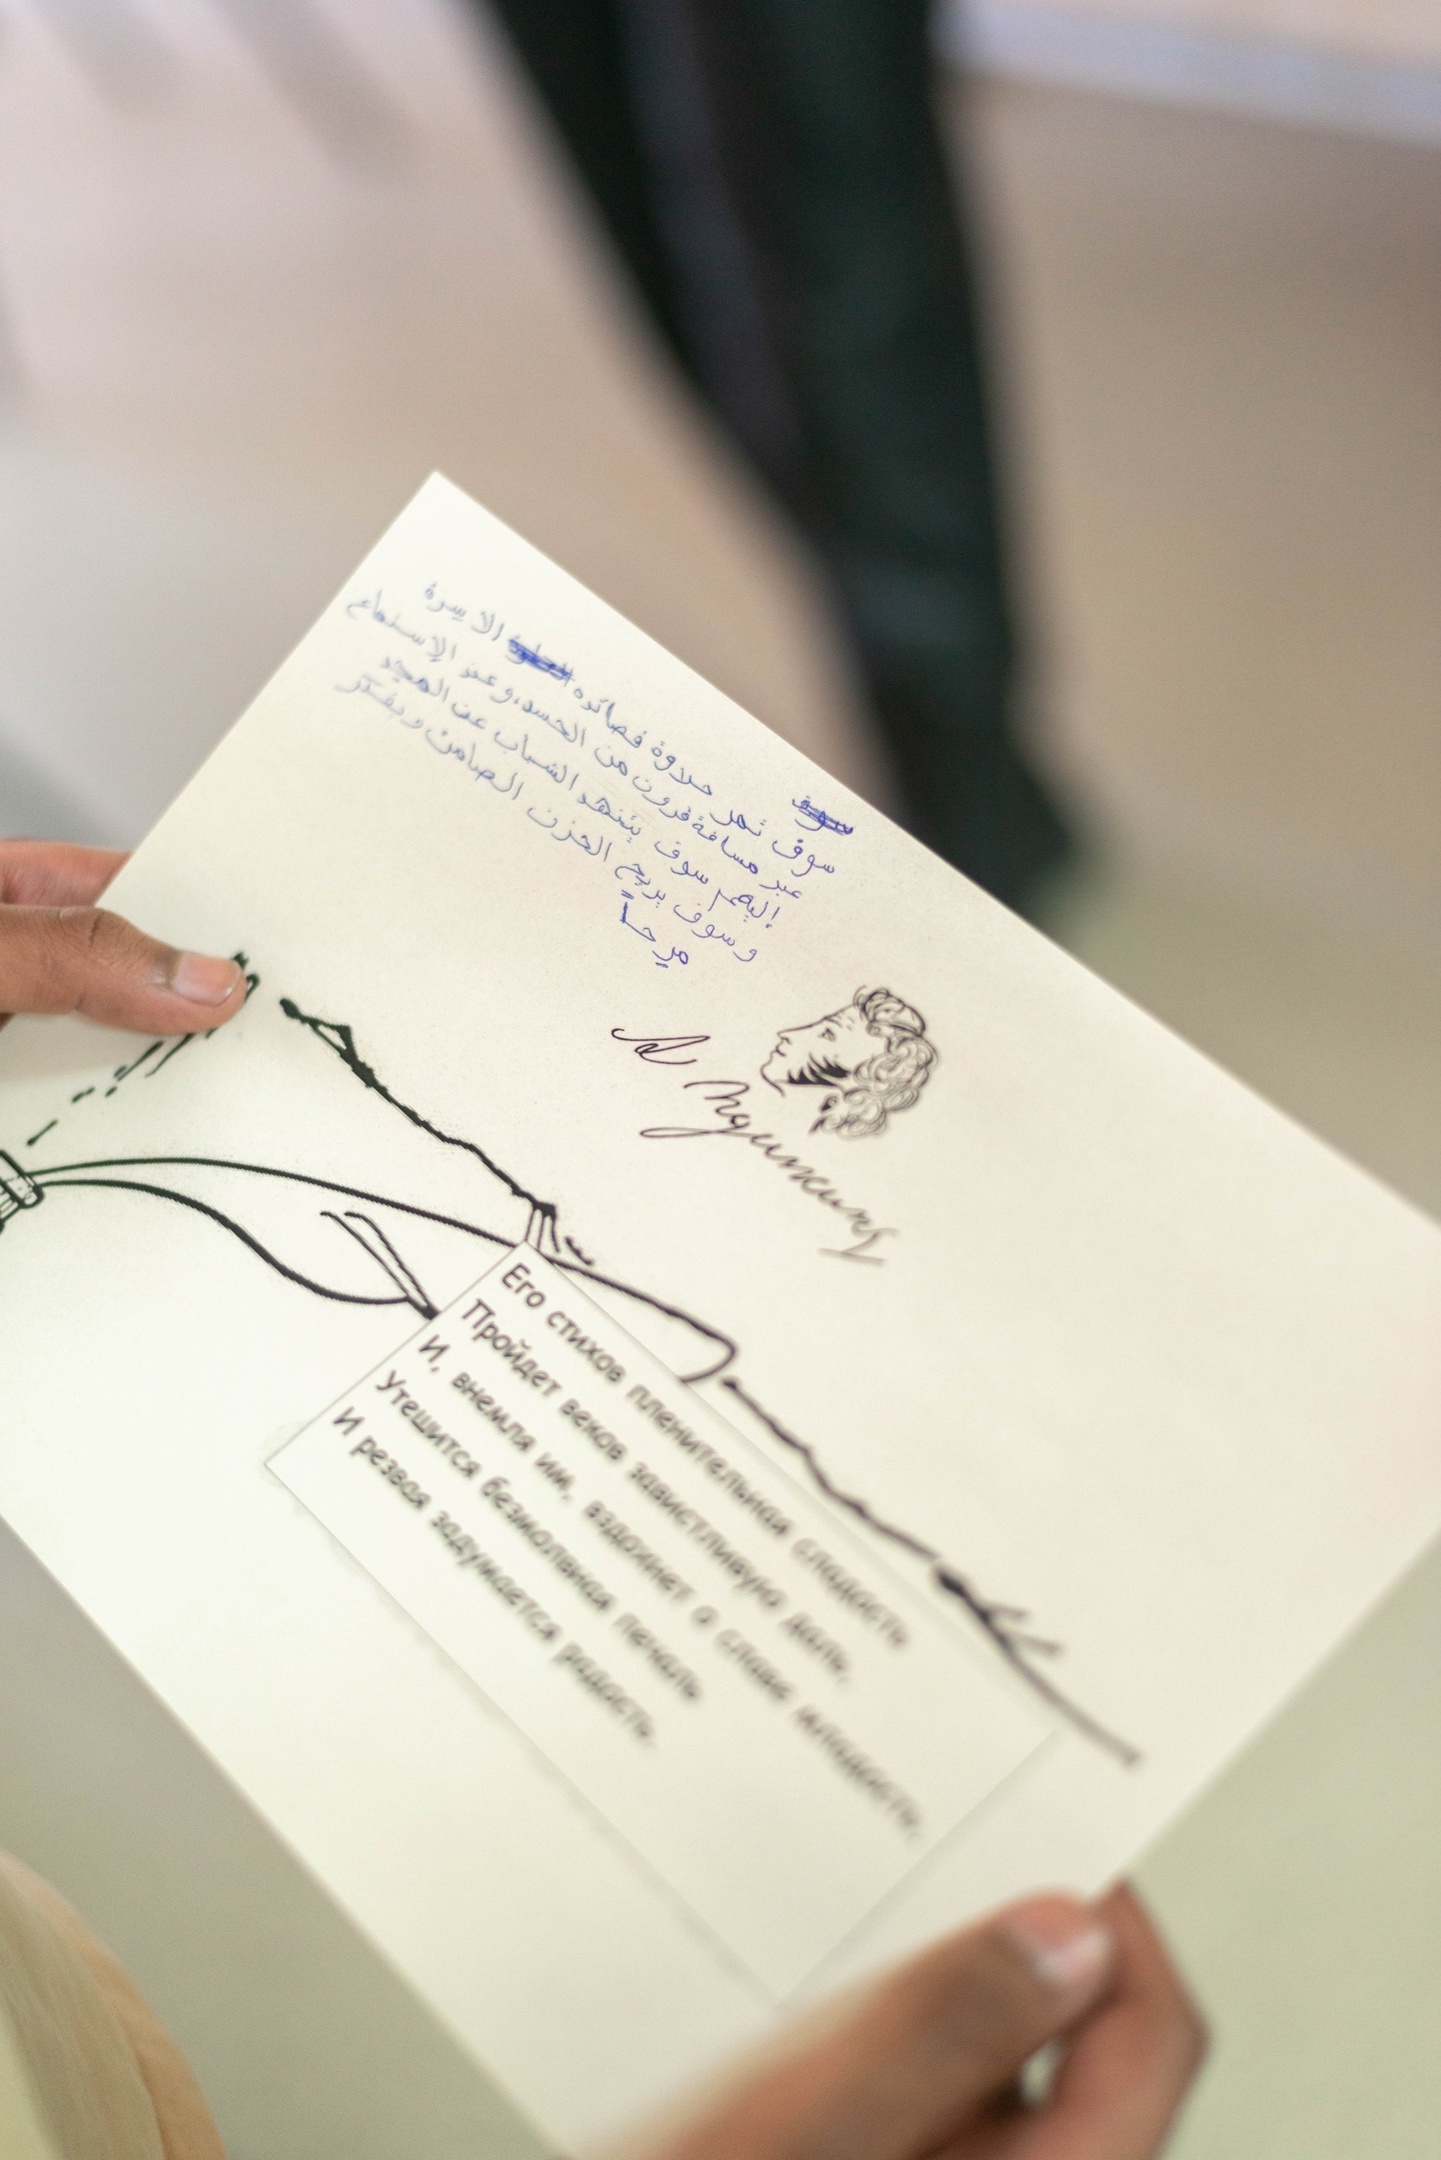 سوف
سوف تمر حلاوة قصائده الاسرة
عبر مسافة قرون من الحسد، وعند الإستماع
إليهم سوف يتنهد الشباب عن المجد
وسوف يريح الحزن الصامت ويفكر
مرحاً
А Пушкинъ
Его стихов пленительная сладость
Пройдет веков завистливую даль,
И, внемля им, вздохнет о славе младость,
Утешится безмолвная печаль
И резвая задумается радость.